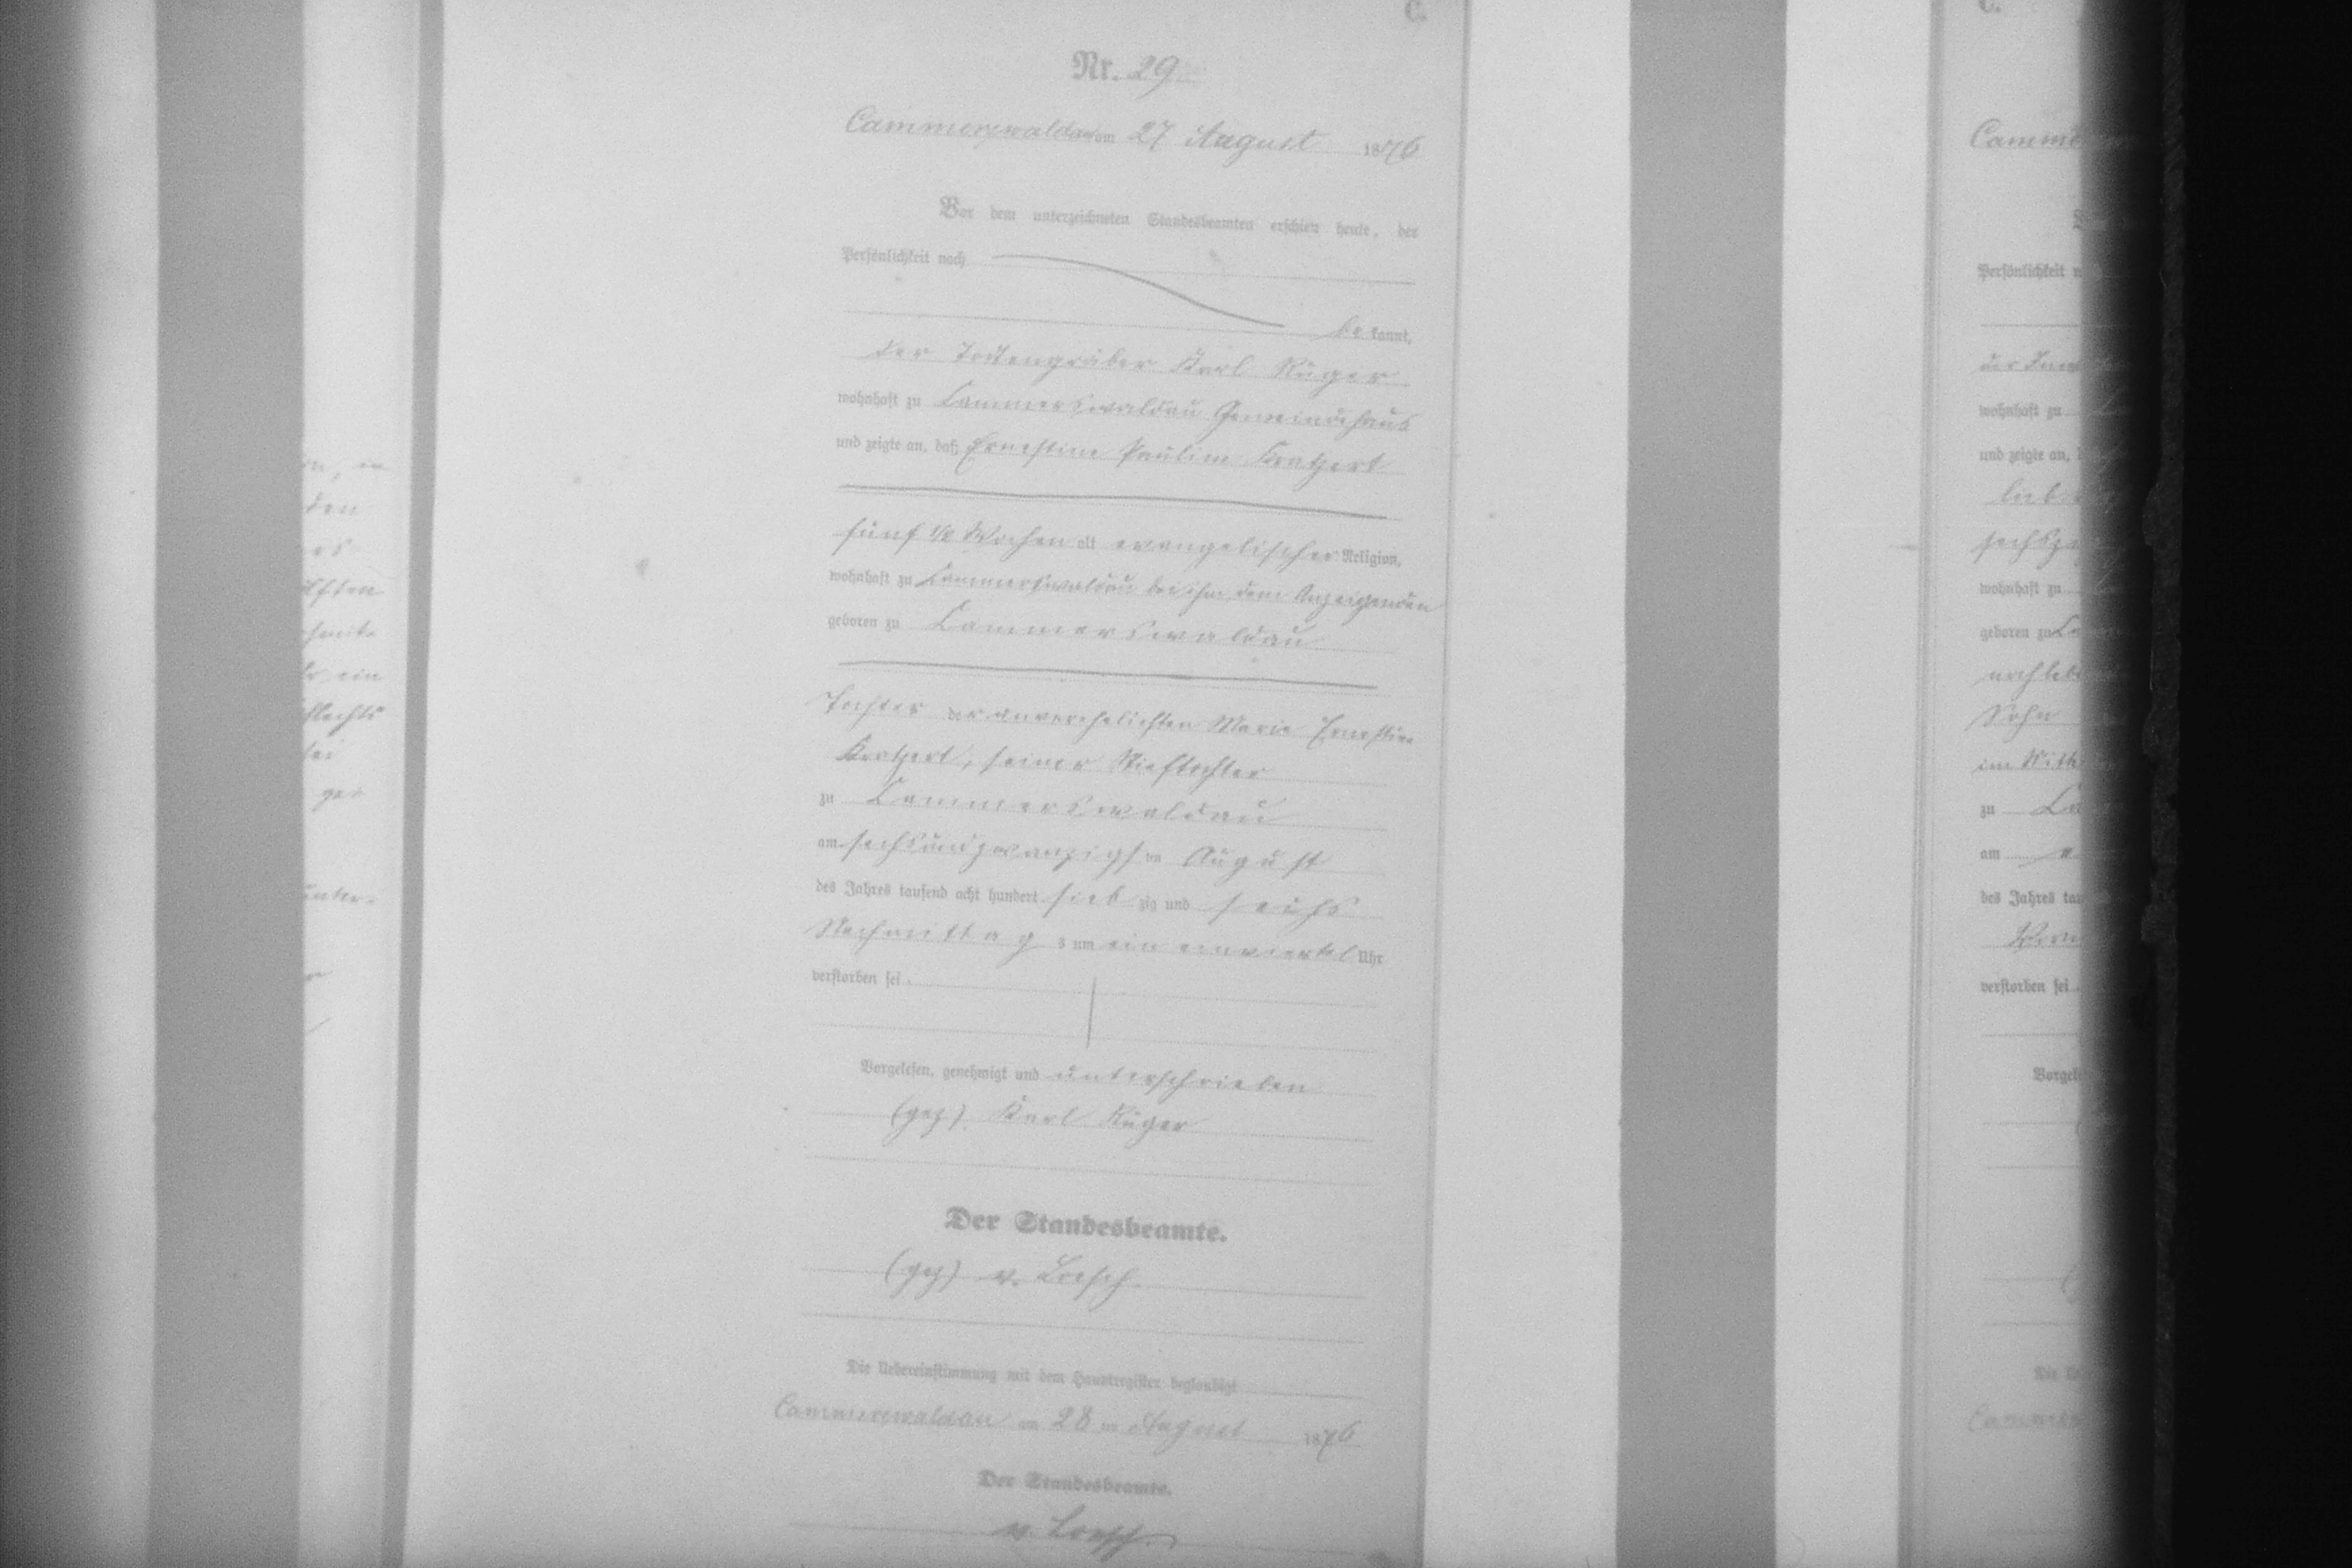 C.
Nr. 29
Cammerswaldau am 27 August 1876
Vor dem unterzeichneten Standesbeamten erschien heute, der
Persönlichkeit nach
be kannt,
der Todtengräber Karl Rüger
wohnhaft zu Cammerswaldau Gemeindehaus
und zeigte an, daß Ernestine Pauline Kratzert
fünf 1/2 Wochen alt evangelischer Religion,
wohnhaft zu Cammerswaldau bei ihm, dem Anzeigenden
geboren zu Cammerswaldau
Tochter der unverehelichten Marie Ernestine
Kratzert, seiner Stieftochter
zu Cammerswaldau
am sechsundzwanzigsten August
des Jahres tausend acht hundert sieb zig und sechs
Nachmittag s um ein einviertel Uhr
verstorben sei.
Vorgelesen, genehmigt und unterschrieben
(gez). Karl Rüger
Der Standesbeamte.
(gez) v. Loesch
Die Uebereinstimmung mit dem Hauptregister beglaubigt
Cammerswaldau am 28 ten August 1876
Der Standesbeamte.
v. Loesch.
C.
Persönlichkeit
wohnhaft zu
und zeigte an,
wohnhaft zu
geboren zu
Sohn
zu
am
des Jahres
verstorben sei